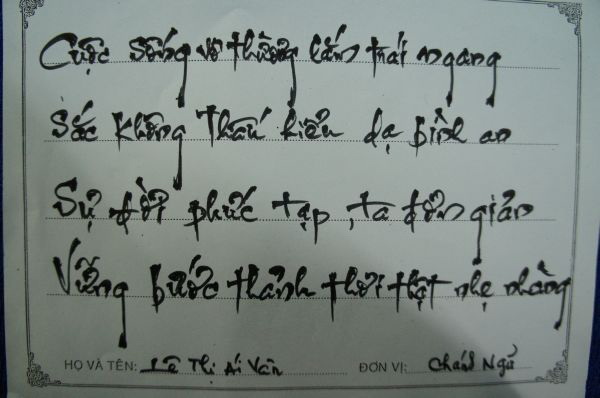 Cuộc sống vô thường lắm trái ngang
Sắc không thấu hiểu dạ bình an
Sự đời phức tạp, ta đơn giản
Vững bước thảnh thơi thật nhẹ nhàng
HỌ VÀ TÊN: Lê Thị Ái Vân ĐƠN VỊ: Chánh Ngữ